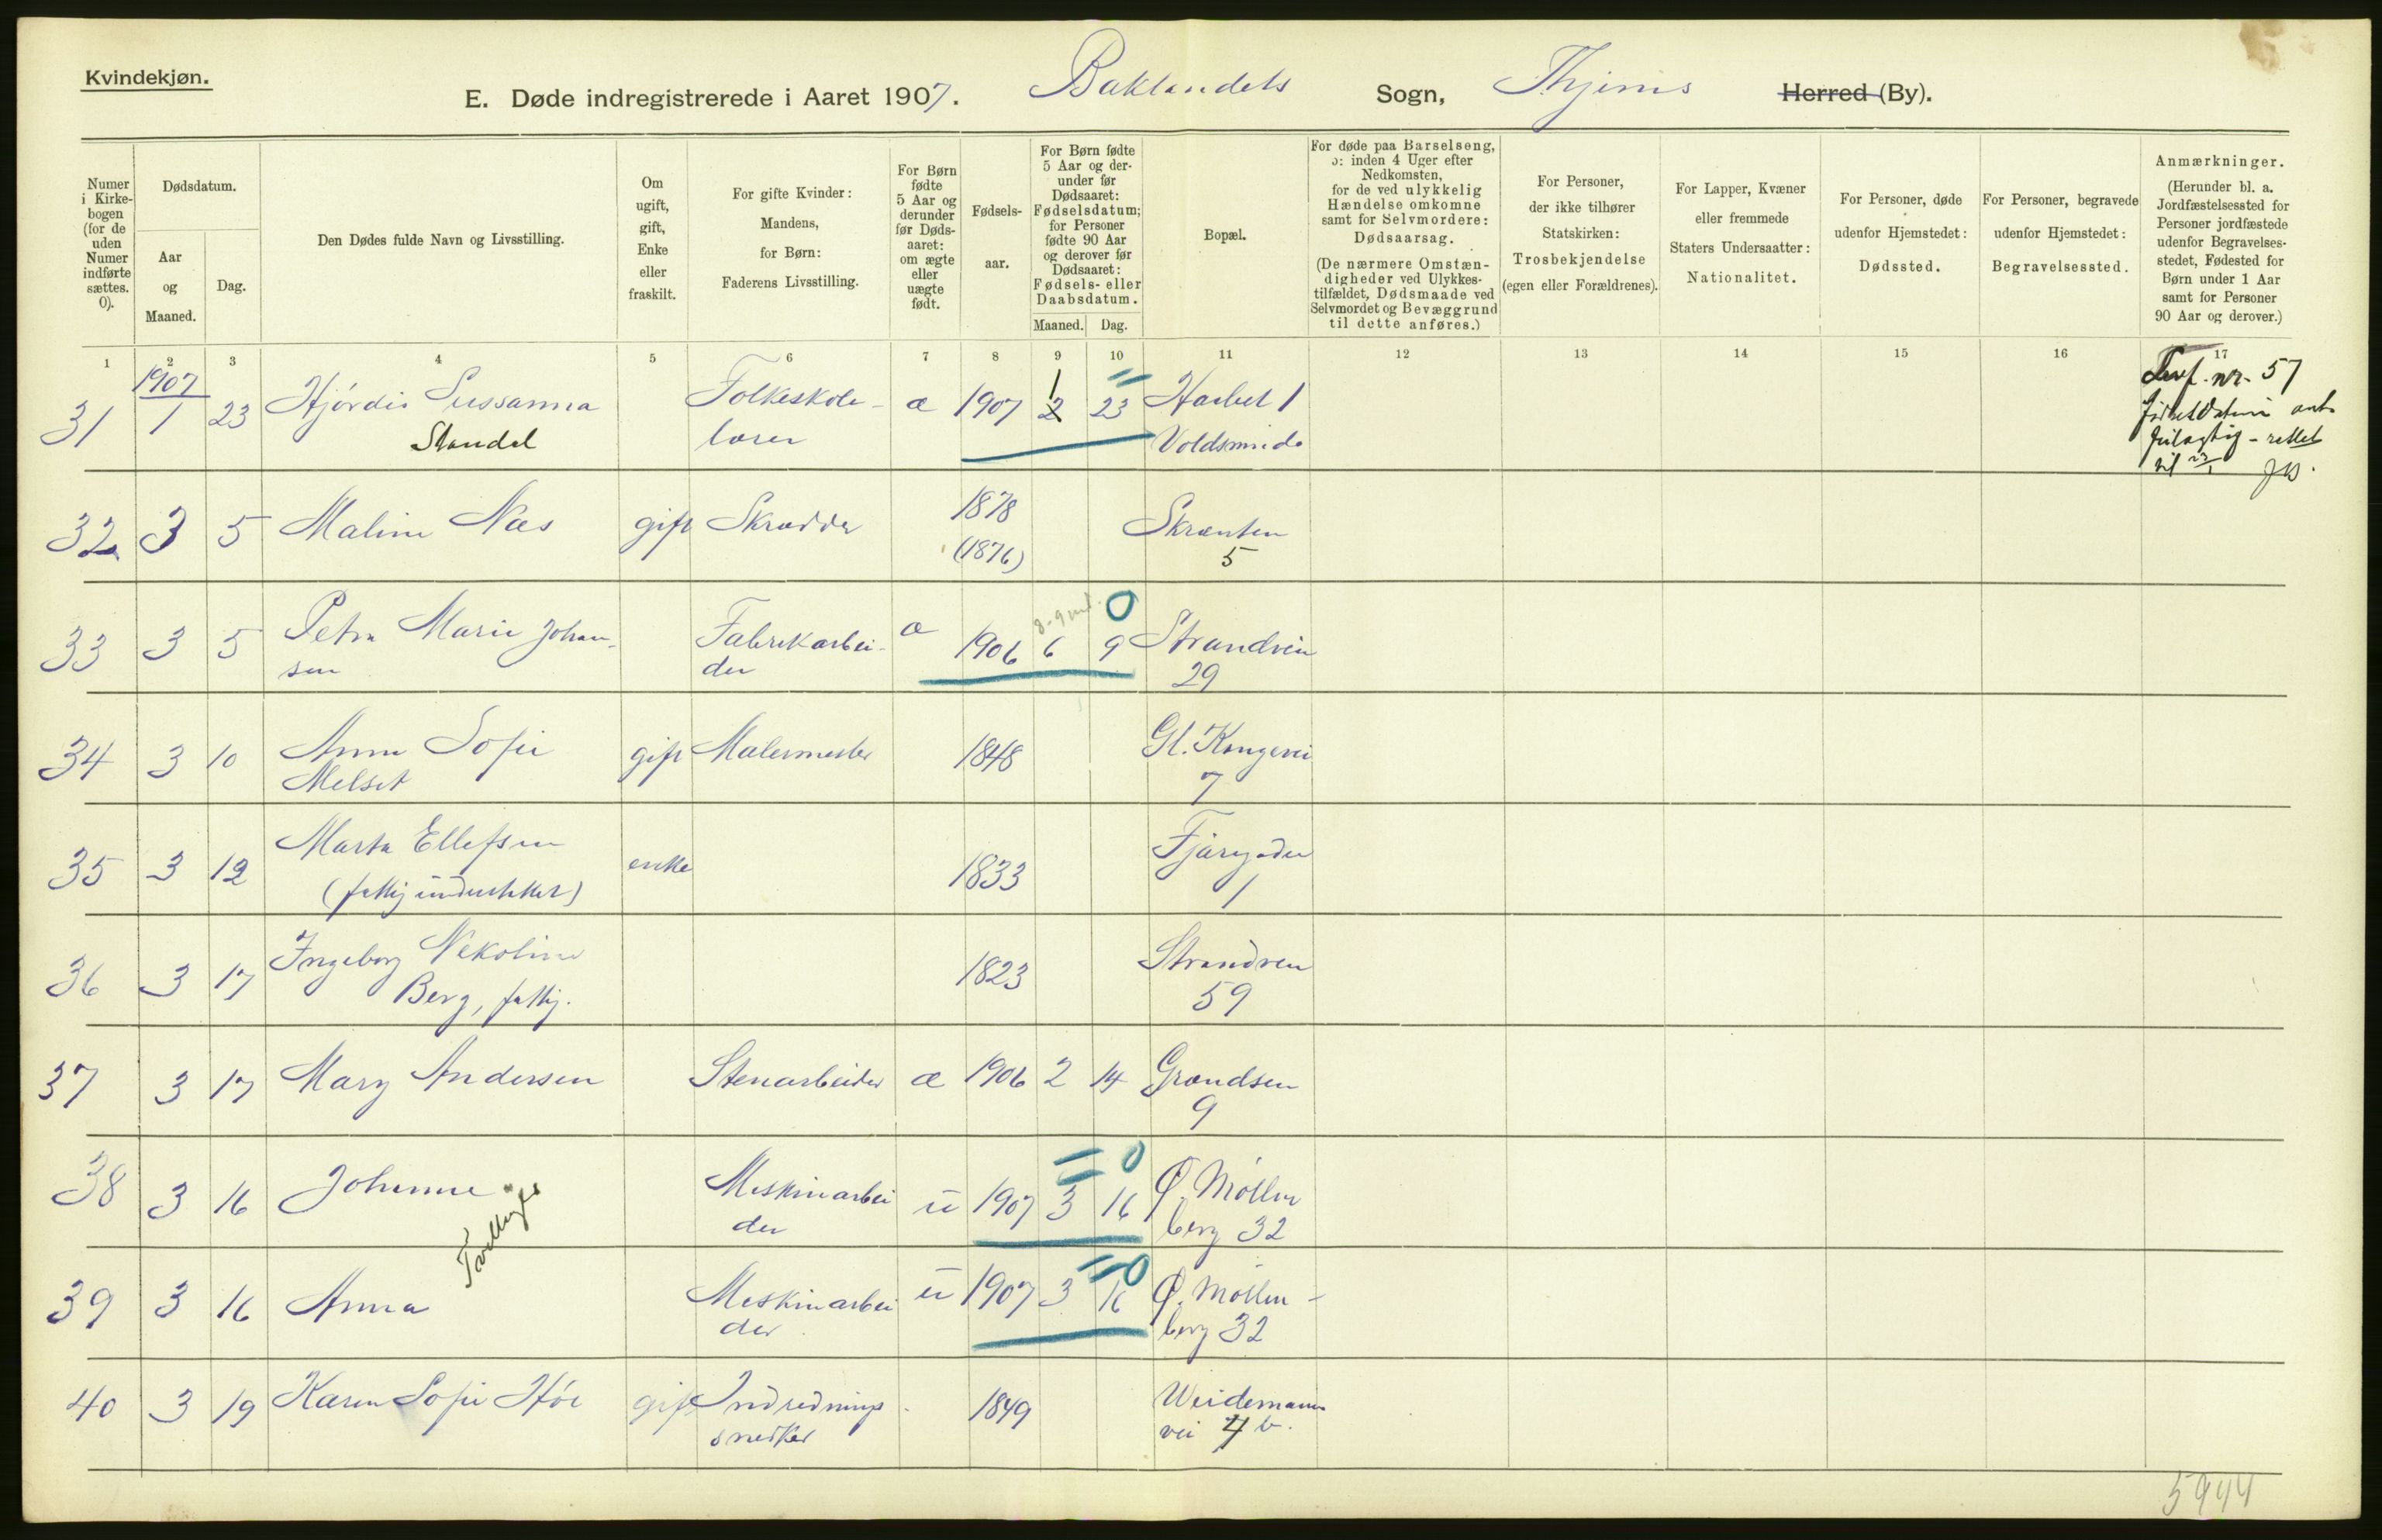 Kvindekjøn.
E. Døde indregistrerede i Aaret 1907. Baklandets Sogn, Thjems Herred (By).
Numer i Kirkebogen (for de uden Numer indførte sættes. 0).
Dødsdatum.
Aar og Maaned.
Dag.
Den Dødes fulde Navn og Livsstilling.
Om ugift, gift, Enke eller fraskilt.
For gifte Kvinder: Mandens, for Børn: Faderens Livsstilling.
For Børn fødte 5 Aar og derunder før Dødsaaret: om ægte eller uægte født.
Fødselsaar.
For Børn fødte 5 Aar og derunder før Dødsaaret: Fødselsdatum; for Personer fødte 90 Aar og derover før Dødsaaret: Fødsels- eller Daabsdatum.
Maaned. Dag.
Bopæl.
For døde paa Barselseng, ɔ: inden 4 Uger efter Nedkomsten, for de ved ulykkelig Hændelse omkomne samt for Selvmordere: Dødsaarsag. (De nærmere Omstændigheder ved Ulykkestilfældet, Dødsmaade ved Selvmordet og Bevæggrund til dette anføres.)
For Personer, der ikke tilhører Statskirken: Trosbekjendelse (egen eller Forældrenes).
For Lapper, Kvæner eller fremmede Staters Undersaatter: Nationalitet.
For Personer, døde udenfor Hjemstedet: Dødssted.
For Personer, begravede udenfor Hjemstedet: Begravelsessted.
Anmærkninger. (Herunder bl. a. Jordfæstelsessted for Personer jordfæstede udenfor Begravelsesstedet, Fødested for Børn under 1 Aar samt for Personer 90 Aar og derover.)
1 2 3 4 5 6 7 8 9 10 11 12 13 14 15 16 17
1907
31 1 23 Hjørdis Sussanna Folkeskole- æ 1907 2 1 23 Harbet 1
Standal lærer Voldsminde
nr. 57
feilagtig - rettet
til 23/1
32 3 5 Maline Næs gift Skrædder 1878 Skrænten
(1876) 5
33 3 5 Petra Marie Johan- Fabrikarbei- æ 1906 6 9 0 Strandvein
8-9 md.
sen der 29
34 3 10 Anna Sofie gift Malermester 1848 Gl. Kongevei
Melset 7
35 3 12 Marta Ellefsen enke 1833 Fjæregaden
(fattigunderstøttet) 1
36 3 17 Ingeborg Nekoline 1823 Strandvein
Berg, fattig. 59
37 3 17 Mary Andersen Stenarbeider æ 1906 2 14 Grændsen
9
38 3 16 Johanne Maskinarbei u 1907 3 16 0 Ø. Møllen
der berg 32
Tvillinger
39 3 16 Anna Maskinarbei u 1907 3 16 0 Ø. Møllen-
der berg 32
40 3 19 Karen Sofie Høe gift Indrednings- 1849 Weidemanns
snedker vei 4 b.
5944